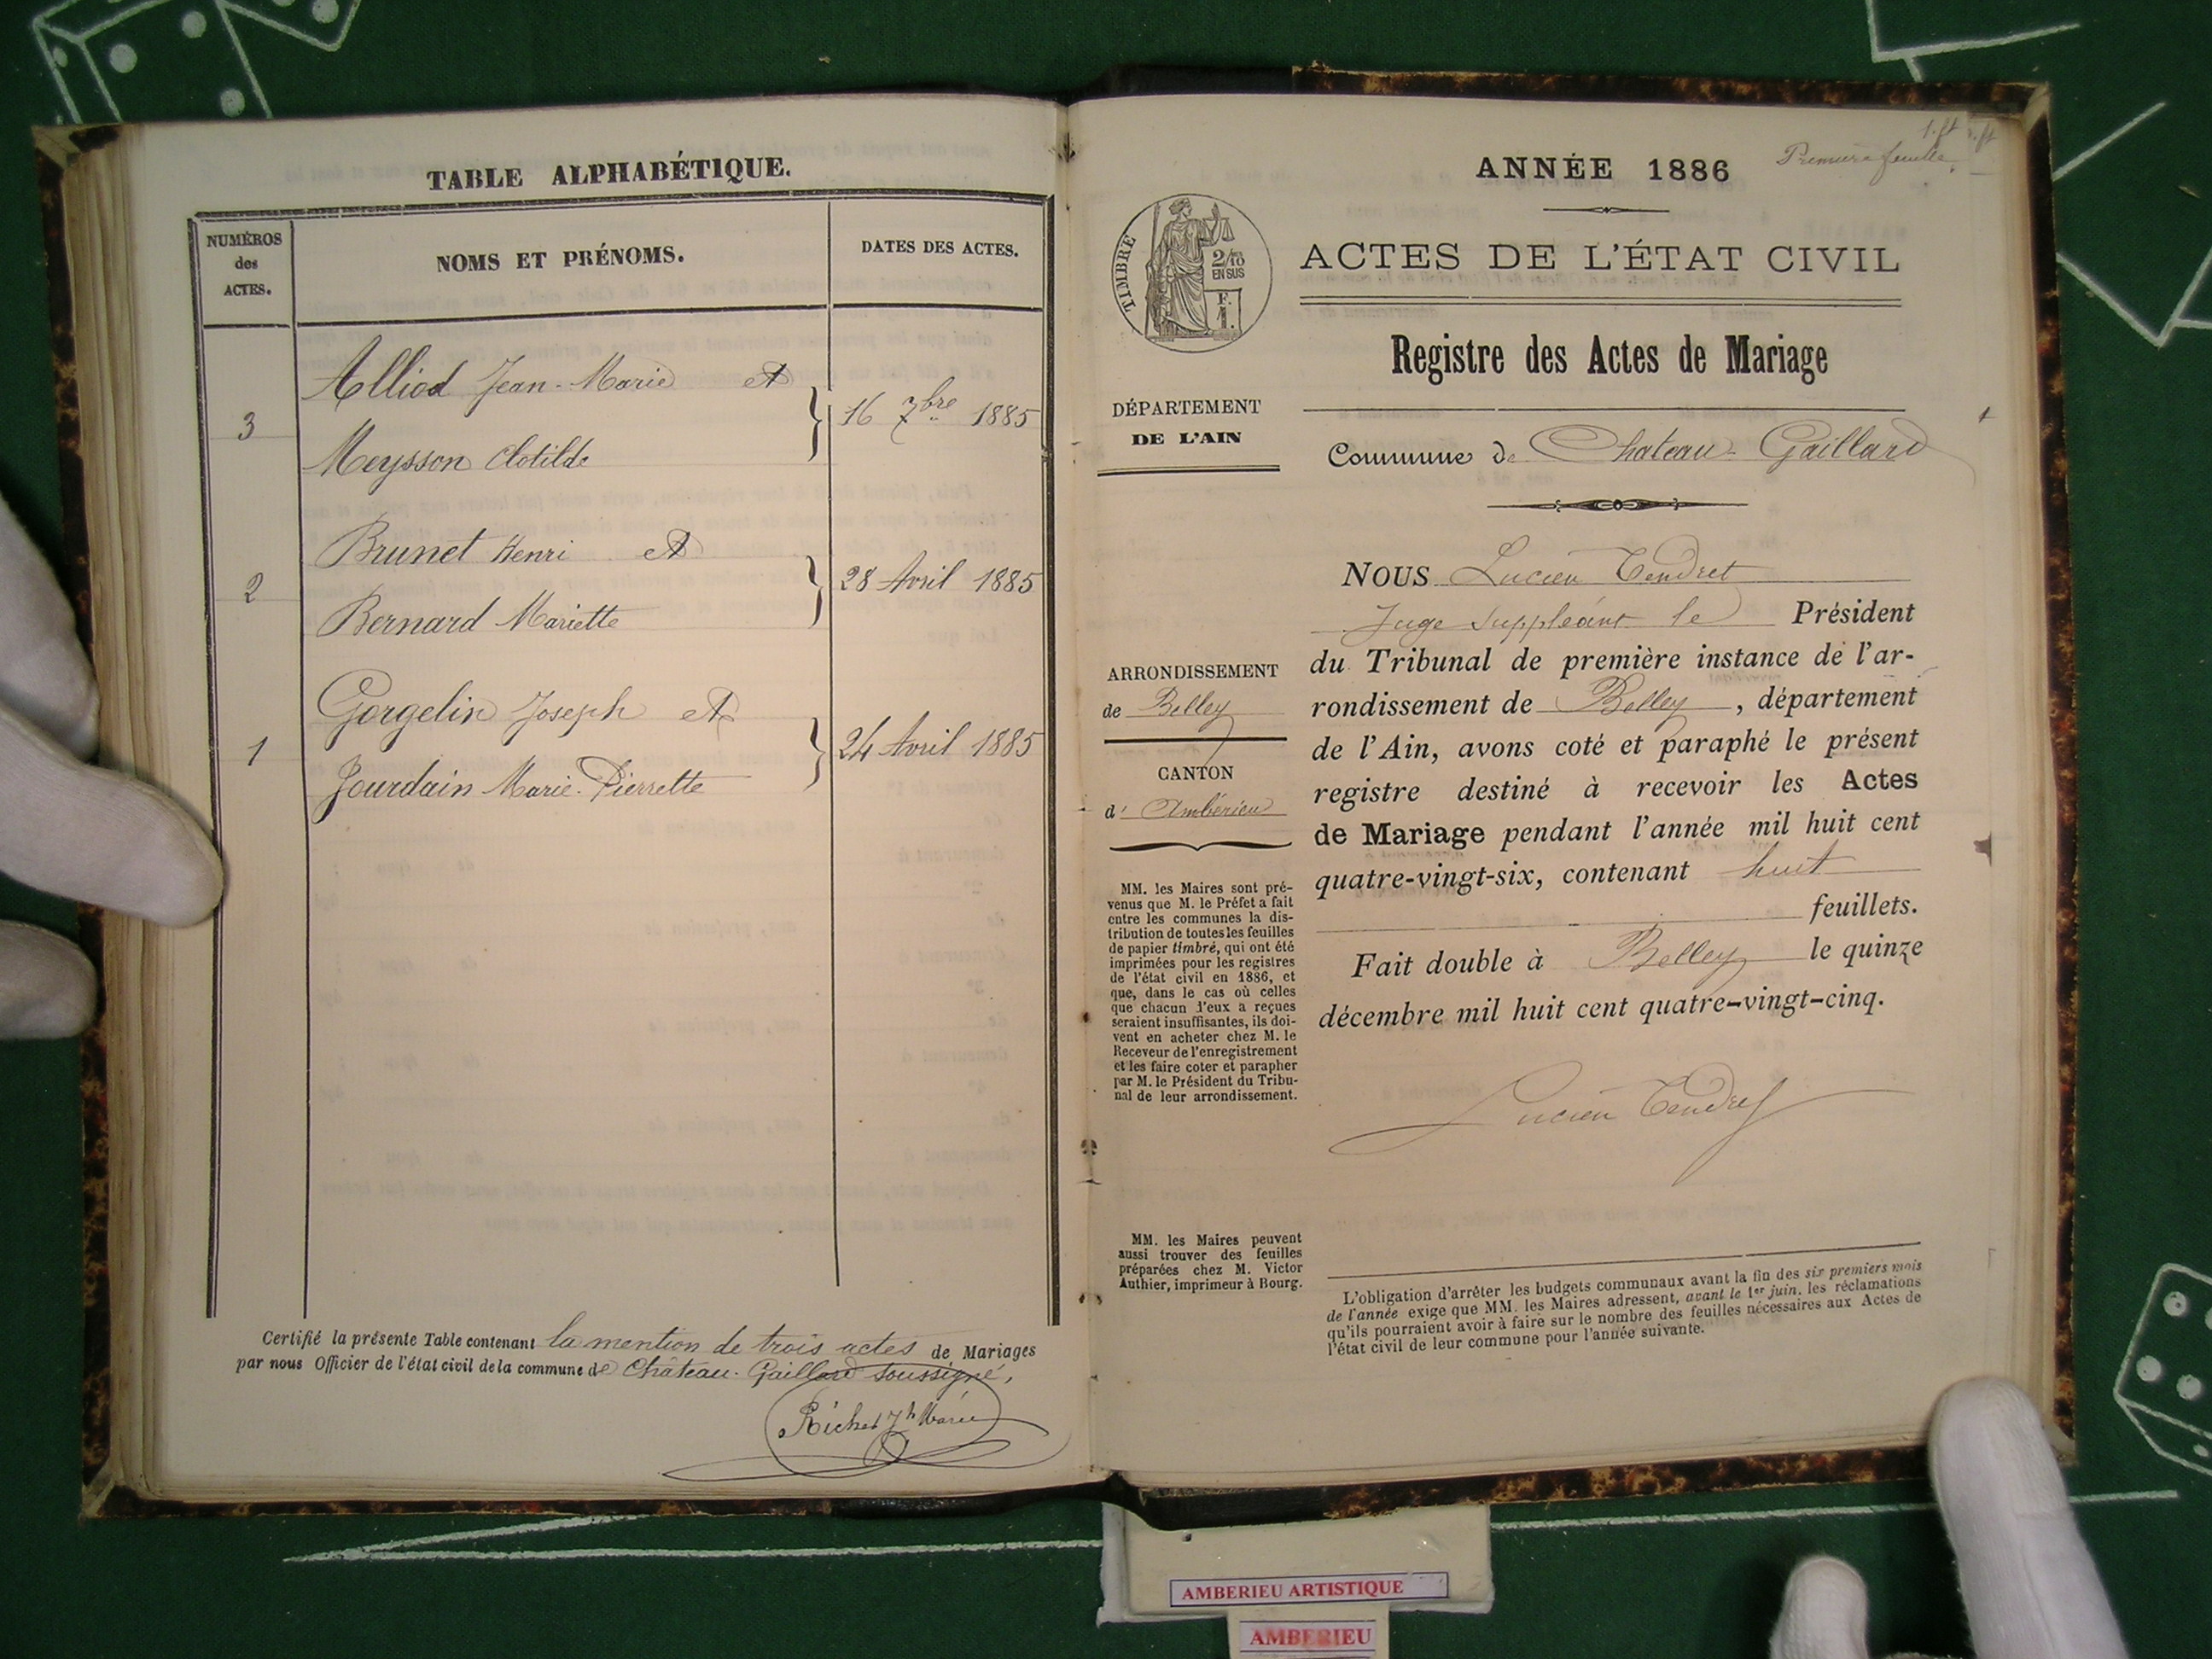 TABLE ALPHABÉTIQUE.
NUMÉROS
des
ACTES.
NOMS ET PRÉNOMS.
DATES DES ACTES.
Alliod Jean-Marie et
3
16 7bre 1885
Meysson Clotilde
Brunet Henri et
2
28 Avril 1885
Bernard Mariette
Gorgelin Joseph et
1
24 Avril 1885
Jourdain Marie-Pierrette
Certifié la présente Table contenant la mention de trois actes de Mariages
par nous Officier de l'état civil de la commune de Château-Gaillard soussigné,
1. ft
Première feuille
ANNÉE 1886
TIMBRE
2/10
EN SUS
F.
1.
ACTES DE L'ÉTAT CIVIL
Registre des Actes de Mariage
DÉPARTEMENT
DE L'AIN
Commune de Chateau-Gaillard
NOUS Lucien Tendret
Juge suppléant le Président
du Tribunal de première instance de l'ar-
rondissement de Belley, département
de l'Ain, avons coté et paraphé le présent
registre destiné à recevoir les Actes
de Mariage pendant l'année mil huit cent
quatre-vingt-six, contenant huit
feuillets.
Fait double à Belley le quinze
décembre mil huit cent quatre-vingt-cinq.
Lucien Tendret
ARRONDISSEMENT
de Belley
CANTON
d' Ambérieu
MM. les Maires sont pré-
venus que M. le Préfet a fait
entre les communes la dis-
tribution de toutes les feuilles
de papier timbré, qui ont été
imprimées pour les registres
de l'état civil en 1886, et
que, dans le cas où celles
que chacun d'eux a reçues
seraient insuffisantes, ils doi-
vent en acheter chez M. le
Receveur de l'enregistrement
et les faire coter et parapher
par M. le Président du Tribu-
nal de leur arrondissement.
MM. les Maires peuvent
aussi trouver des feuilles
préparées chez M. Victor
Authier, imprimeur à Bourg.
L'obligation d'arrêter les budgets communaux avant la fin des six premiers mois
de l'année exige que MM. les Maires adressent, avant le 1er juin, les réclamations
qu'ils pourraient avoir à faire sur le nombre des feuilles nécessaires aux Actes de
l'état civil de leur commune pour l'année suivante.
AMBERIEU ARTISTIQUE
AMBERIEU